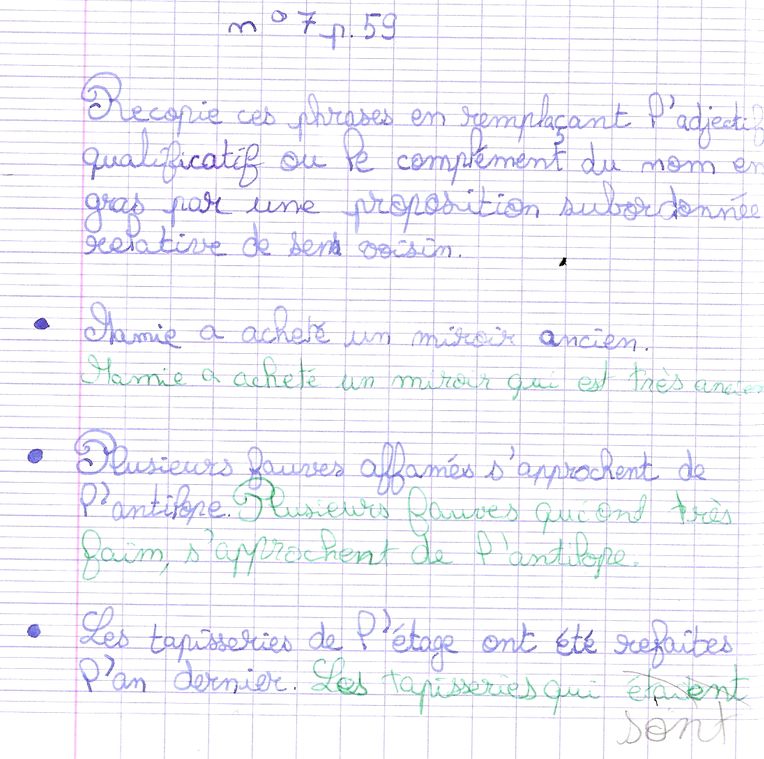 n° 7 p. 59
Recopie ces phrases en remplaçant l'adjectif
qualificatif ou le complément du nom en
gras par une proposition subordonnée
relative de sens voisin.
• Mamie a acheté un miroir ancien.
Mamie a acheté un miroir qui est très ancien
• Plusieurs fauves affamés s'approchent de
l'antilope. Plusieurs fauves qui ont très
faim, s'approchent de l'antilope.
• Les tapisseries de l'étage ont été refaites
l'an dernier. Les tapisseries qui étaient
sont